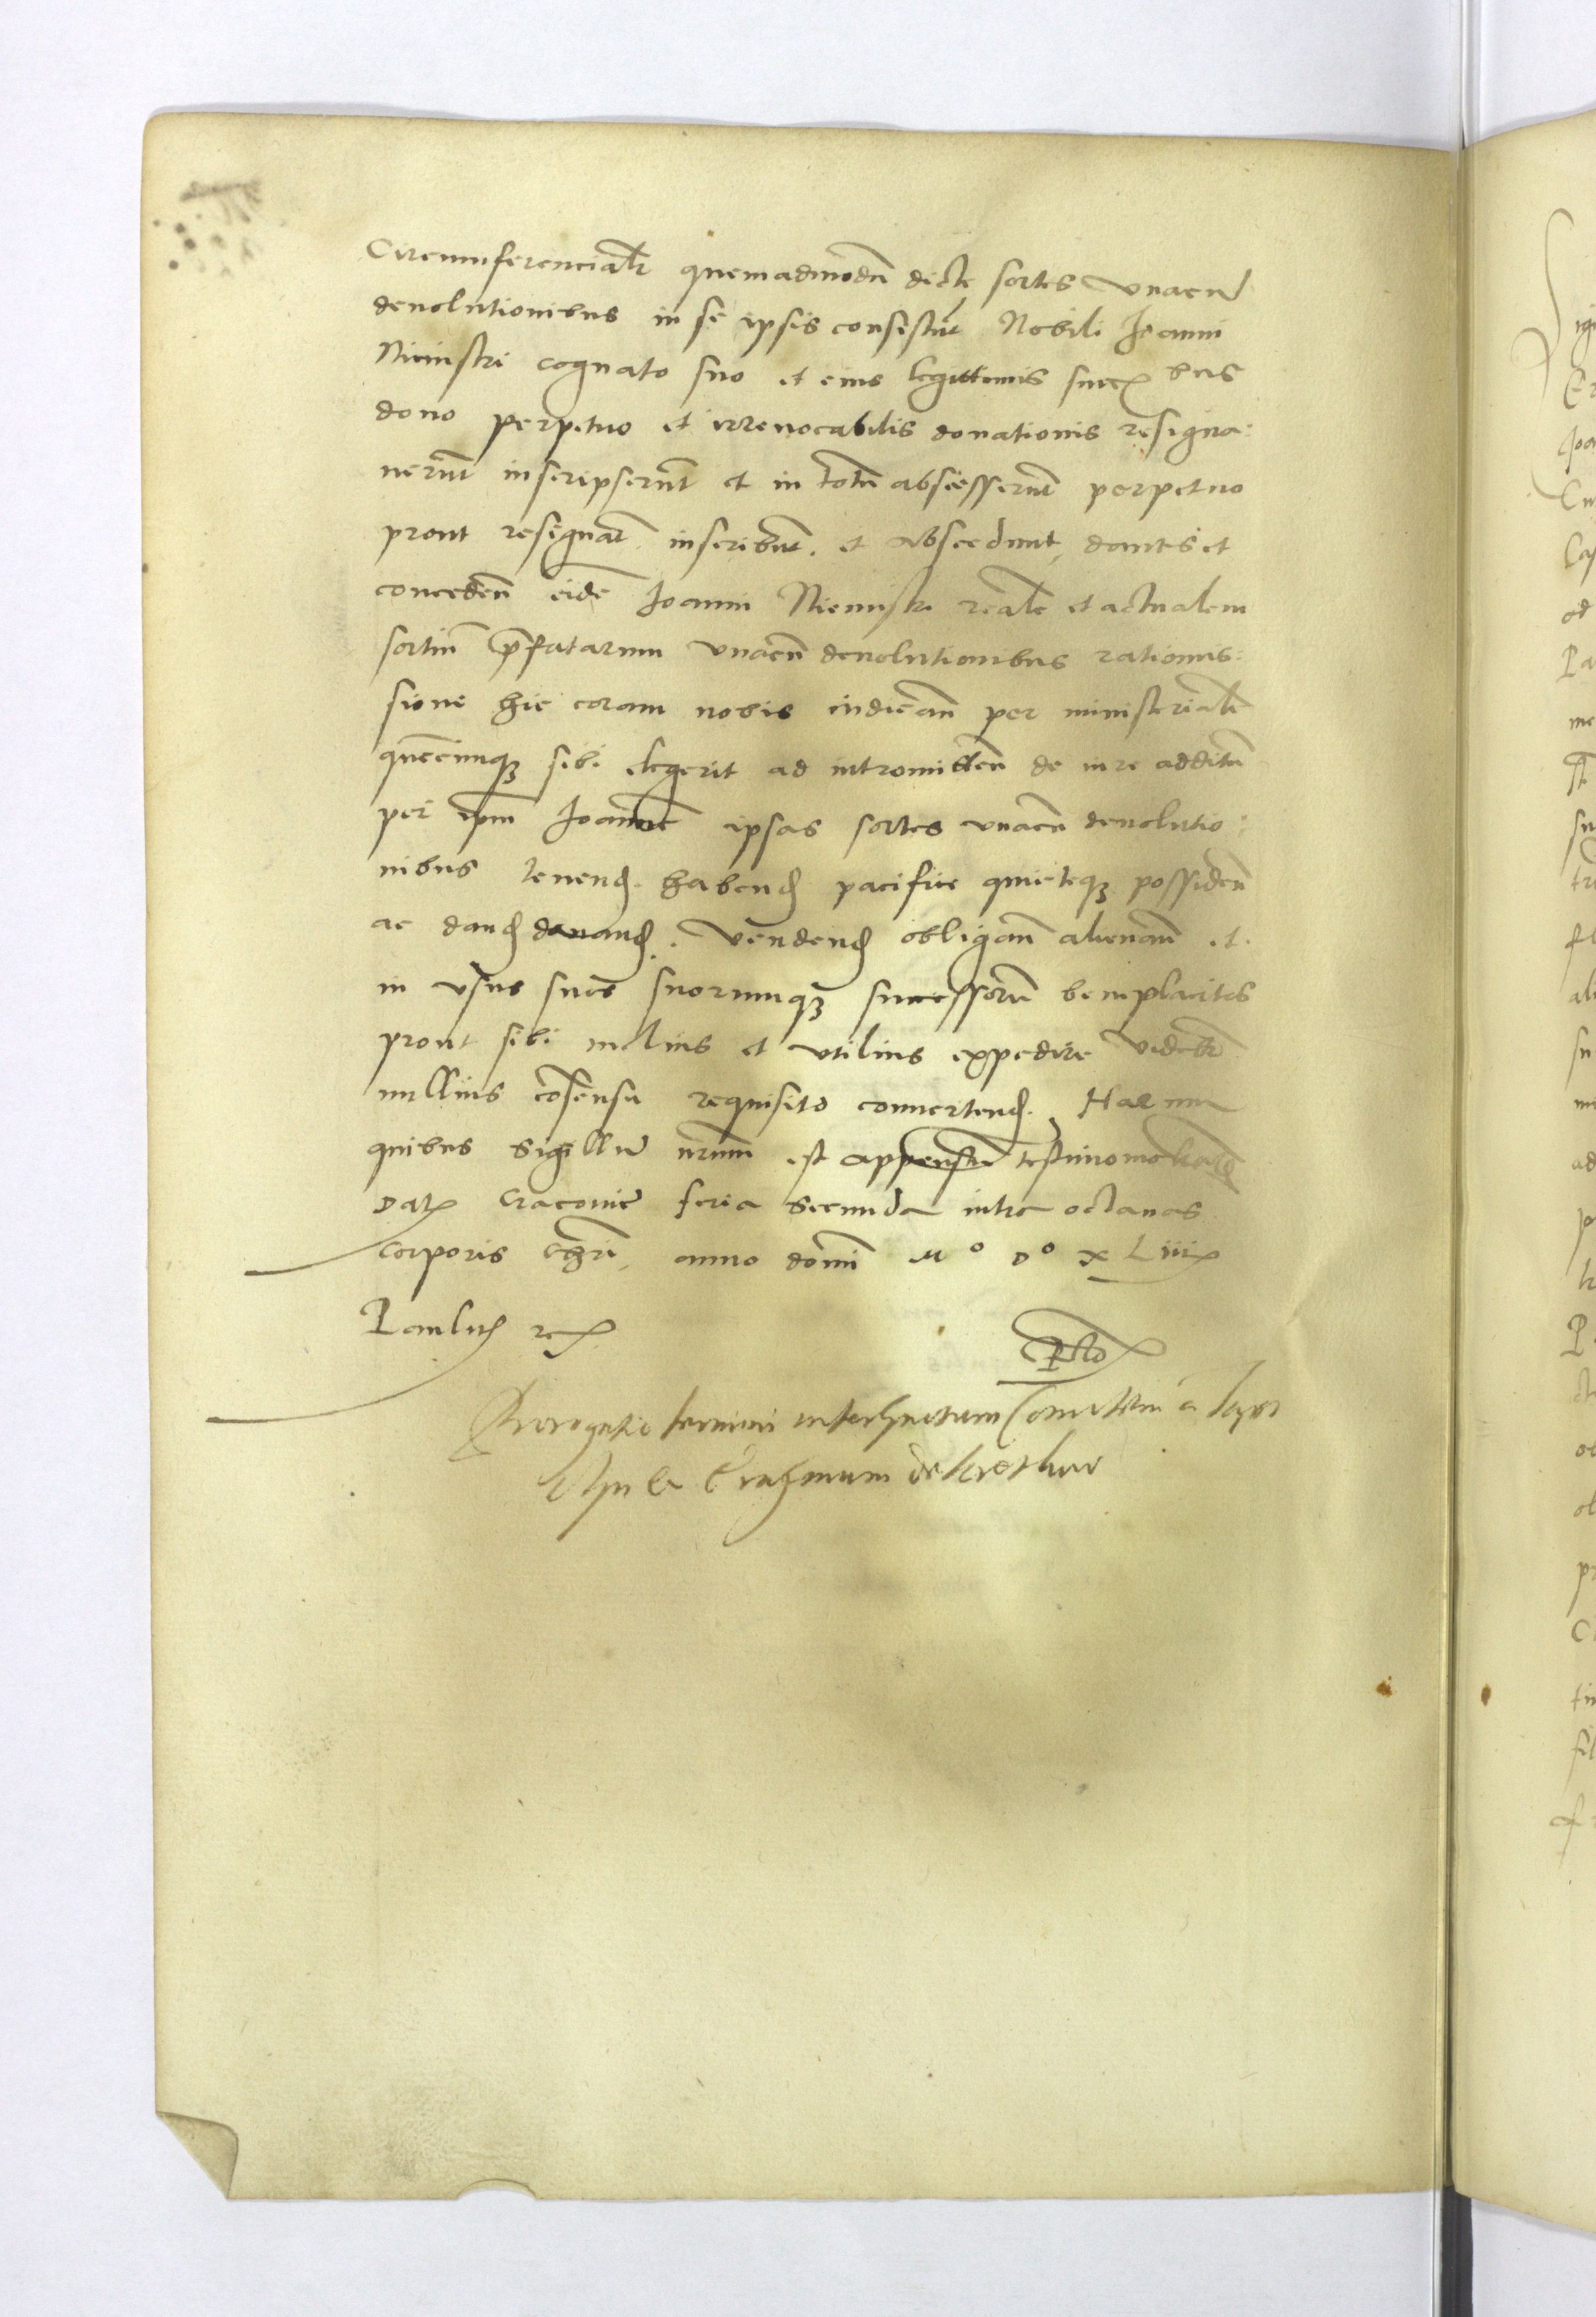 Circumferencialr quemadmodu dicte sortes vnacu
deuolutionibus in se ipsis consistut Nobili Joanni
Niemstri cognato suo et eius legittimis succ bus
dono perpetuo et irreuocabilis donationis resigna:
uerut inscripserut et in totu abscesserut perpetuo
prout resignat inscribut. et abscedunt, dantes et
conceden eide Joanni Niemstri reale et actualem
sortiu prefatarum vnacu deuolutionibus rationis:
sione hic coram nobis indican per ministeriale
quecumq3 sibi elegerit ad intromitten de iure additu
per ipm Joanne ipsas sortes vnacu deuolutio:
nibus tenend. habend pacifice quieteq3 possiden
ac dand donand. vendend obligan alienan et.
in vsus suos suorumq3 successoru beneplacitos
prout sibi melius et vtilius expedire videbr
nullius cosensu requisito conuertend. Harum
quibus sigillu nrum est appensu testimonio
Dat Cracouie feria secunda intra octauas
corporis Chri, anno domi M° D° xLiii
Paulus
Prorogatio termini inter
Erasmum de